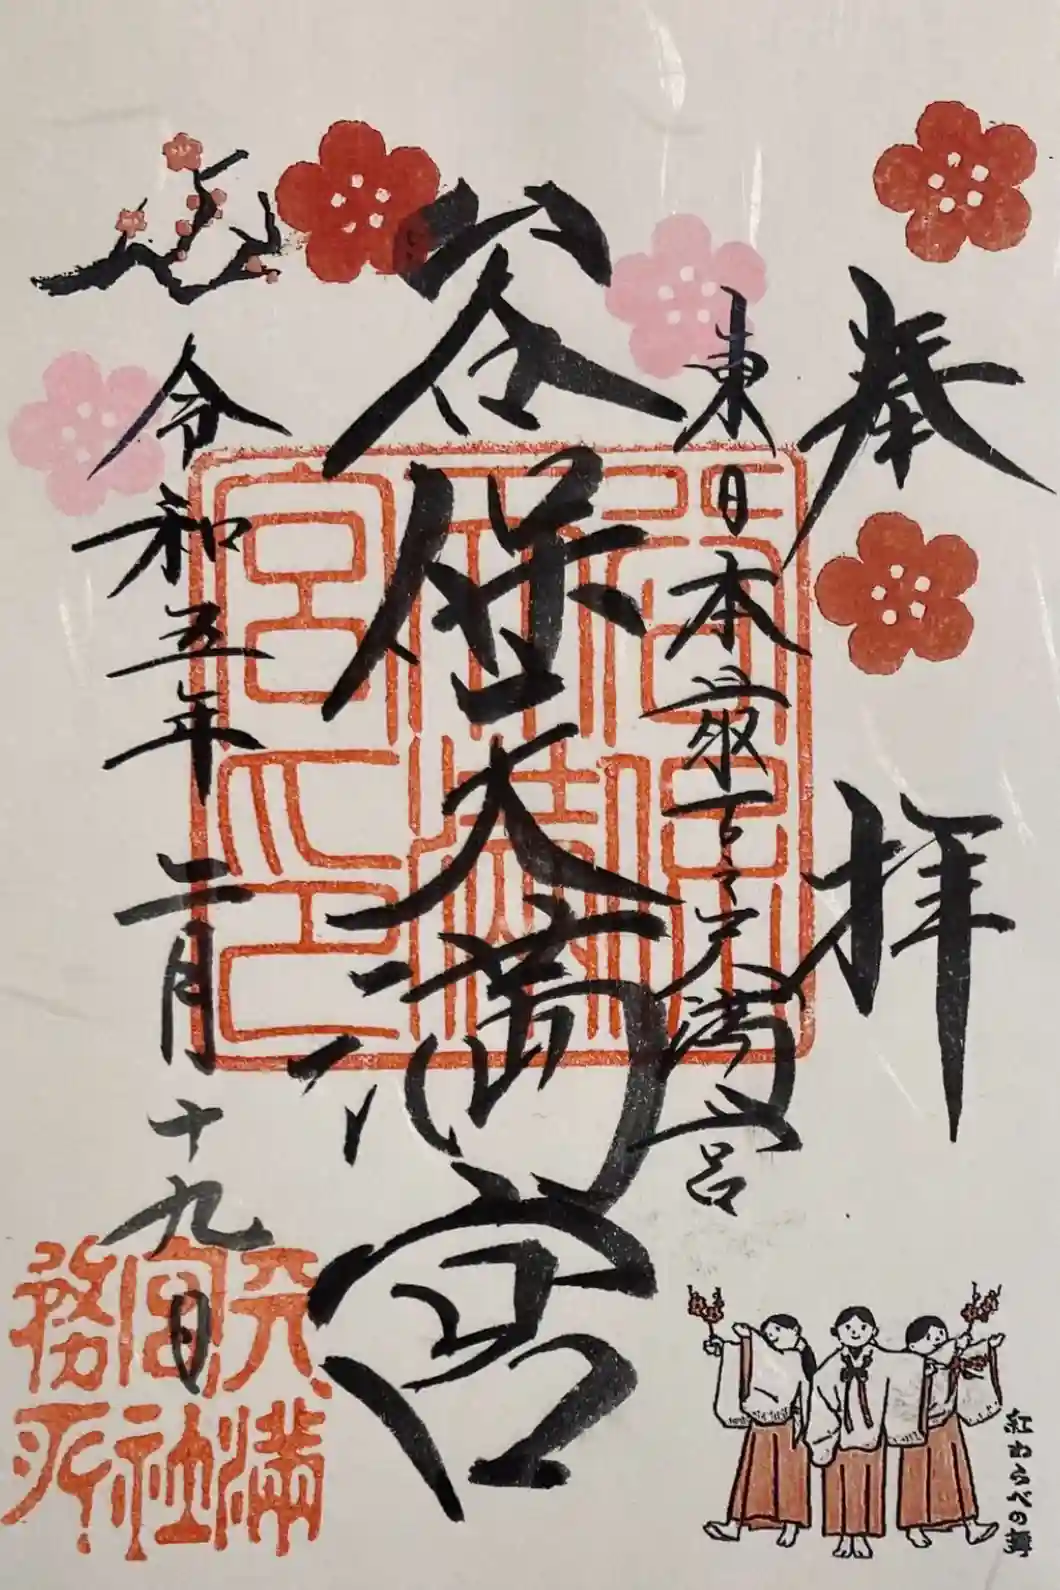 奉拝
東日本最古之天満宮
谷保天満宮
令和五年二月十九日
天満宮社務所
紅わらべの舞